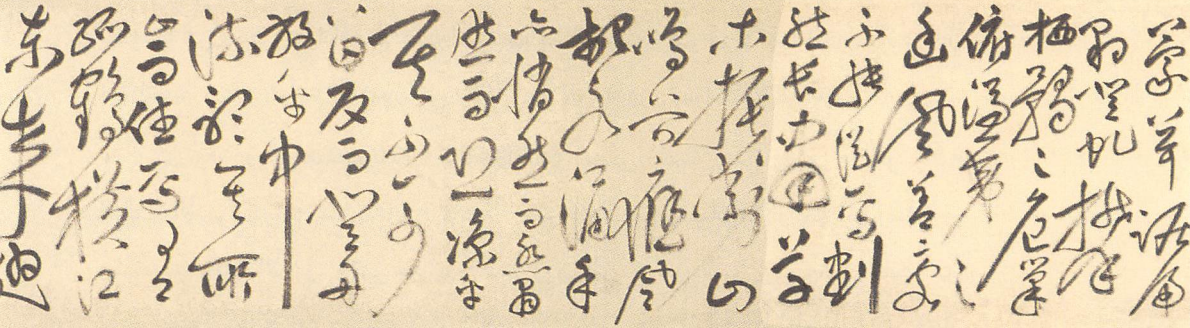 蒙茸踞虎
豹登虬龍攀
栖鶻之危巢
俯馮夷之
幽宮蓋二客
不能從焉劃
然長嘯草
木振動山
鳴谷應風
起水涌予
亦悄然而悲肅
然而恐凛乎
其不可
留反而登舟
放乎中
流聽其所
止而休焉
孤鶴橫江
東來翅